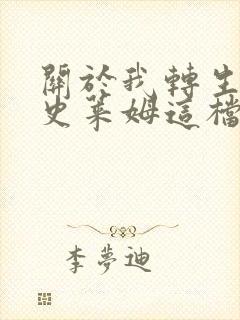 關於我轉生
史萊姆這檔
李夢迪